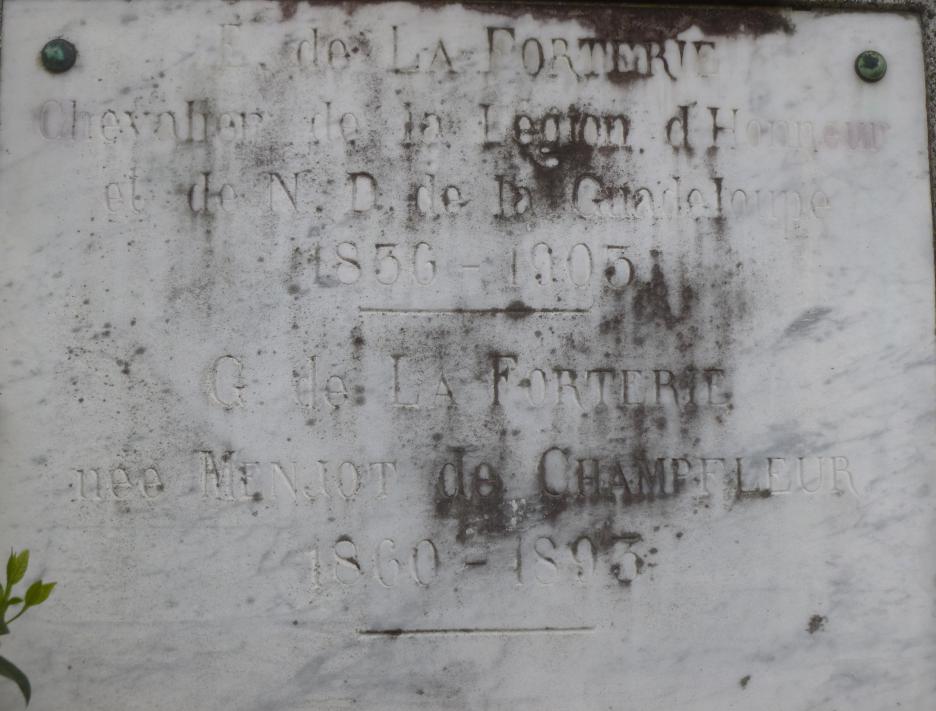 E. de LA FORTERIE
Chevalier de la Légion d'Honneur
et de N. D. de la Guadeloupe
1836 - 1903
G. de LA FORTERIE
née MENJOT de CHAMPFLEUR
1860 - 1893